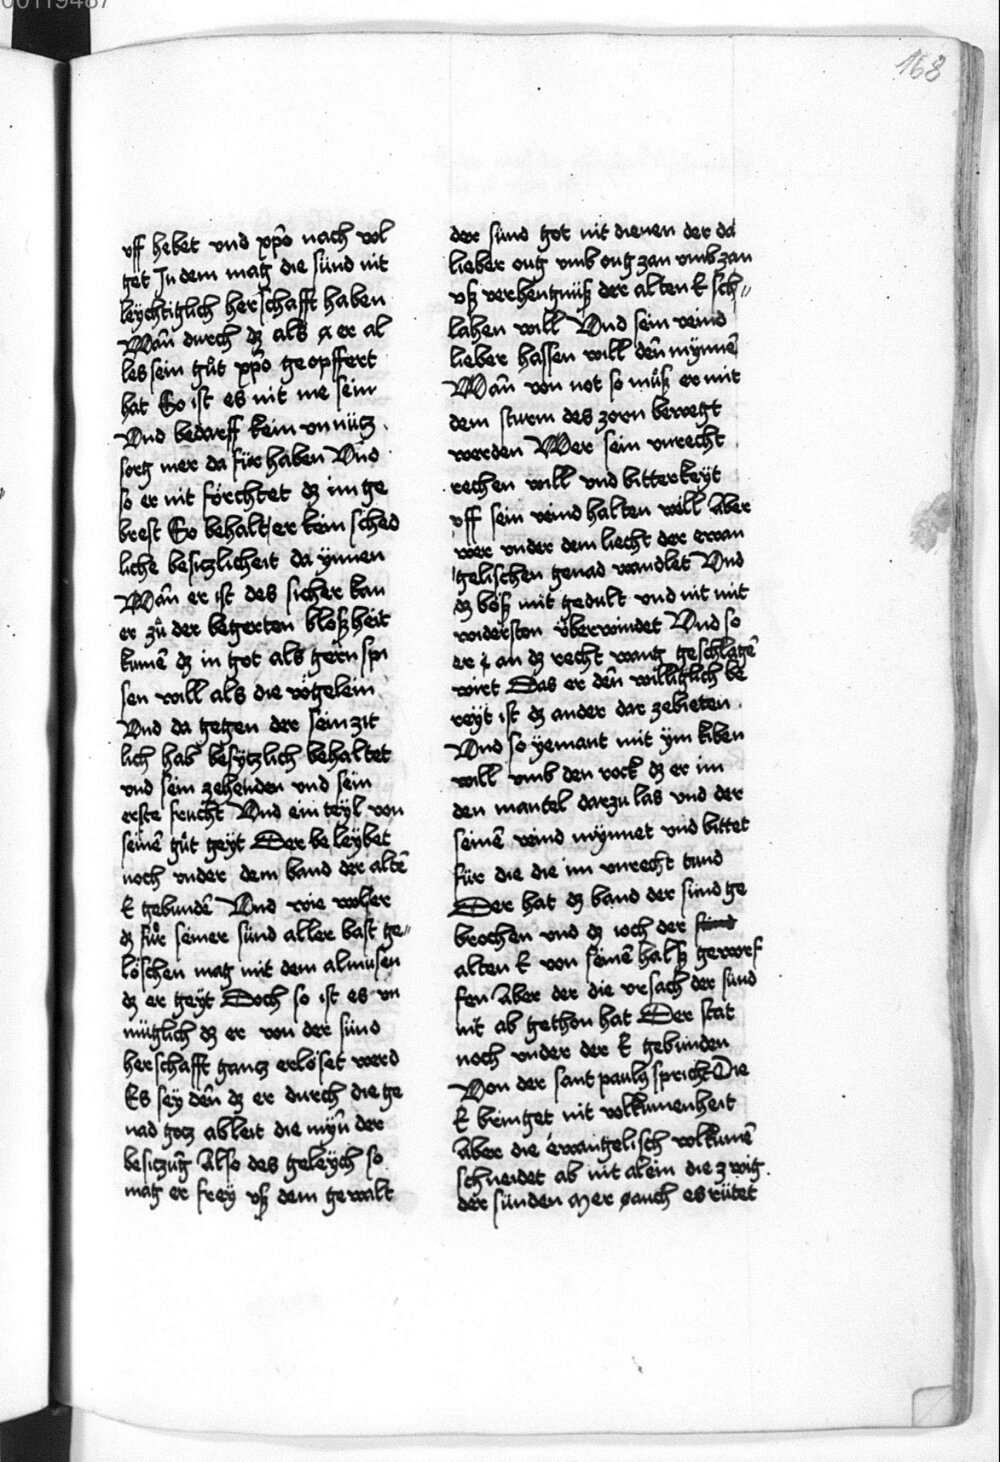 00119487
168
vff hebet vnd xpo nach vol
get In dem mag die sünd nit
leychtiglich herschafft haben
Wan̄ durch dz als er al
les sein gůt xpo geopffert
hat So ist es nit me sein
Vnd bedarff kein vnnütz
sorg mer da für haben Vnd
so er nit förchtet dz im ge
brest So behalt er kein sched
liche besiczlicheit da ynnen
Wan̄ er ist des sicher kan
er zů der begerten bloßheit
kumē dz in got als gern spi
sen will als die vögelein
Vnd da gegen der sein zit
lich hab besytzlich behaltet
vnd sein zehenden vnd sein
erste frucht Vnd ein teyl von
seinē gůt geyt Der beleybet
noch vnder dem band der altē
E gebundē Vnd wie wol er
dz für seiner sünd aller bast ge〃
löschen mag mit dem almusen
dz er geyt Doch so ist es vn
müglich dz er von der sünd
herschafft gancz erlöset werd
Es sey den̄ dz er durch die ge
nad gocz ableit die myn̄ der
besiczūg Also des geleych so
mag er frey vß dem gewalt
der sünd got nit dienen der da
lieber oug vmb oug zan vmb zan
vß verhengnüß der alten E sch〃
lahen will Vnd sein veind
lieber hassen will den̄ mynnē
Wan̄ von not so můß er mit
dem sturm des zorn bewegt
werden Wer sein vnrecht
rechen will vnd bitterkeyt
vff sein veind halten will Aber
wer vnder dem liecht der ewan
gelischen genad wandlet Vnd
dz böß mit gedult vnd nit mit
widersten überwindet Vnd so
er an dz recht wang geschlagē
wirt Das er den̄ williglich be
reyt ist dz ander dar zebieten
Vnd so yemant mit ym kiben
will vmb den rock dz er im
den mantel darzu las vnd der
seinē veind mynnet vnd bittet
für die die im vnrecht tund
Der hat dz band der sünd ge
brochen vnd dz ioch der sünd
alten E von seinē halß geworf
fen Aber der die vrsach der sünd
nit ab gethon hat Der stat
noch vnder der E gebunden
Von der sant paulꝫ spricht Die
E bringet nit volkumenheit
Aber die ewangelisch volkumē
schneidet ab nit alein die zwig
der sünden Mer auch es rütet